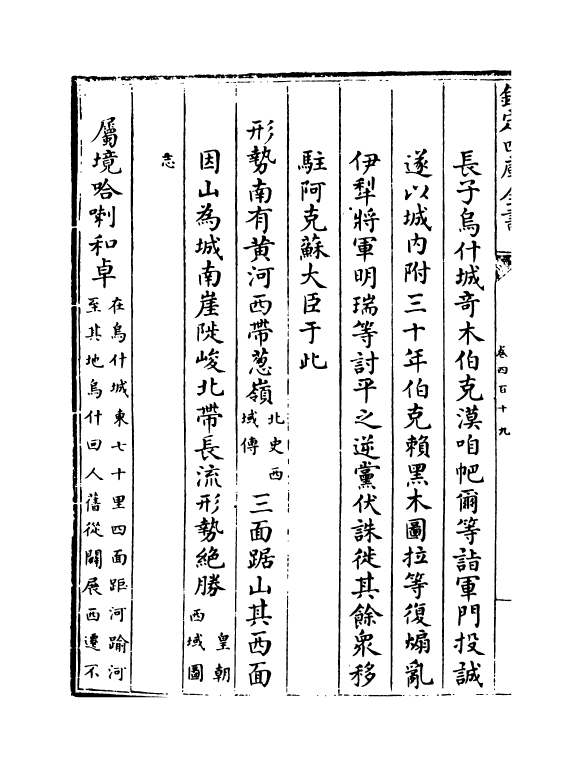 欽定四庫全書
卷四百十九
長子烏什城竒木伯克漠咱帊爾等詣軍門投誠
遂以城内附三十年伯克賴黑木圖拉等復煽亂
伊犂將軍明瑞等討平之逆黨伏誅徙其餘衆移
駐阿克蘇大臣于此
形勢南有黄河西帶葱嶺北史西域傳三面踞山其西面
因山為城南崖陡峻北帶長流形勢絶勝皇朝西域圖
志
屬境哈喇和卓在烏什城東七十里四面距河踰河
至其地烏什回人舊從闢展西遷不